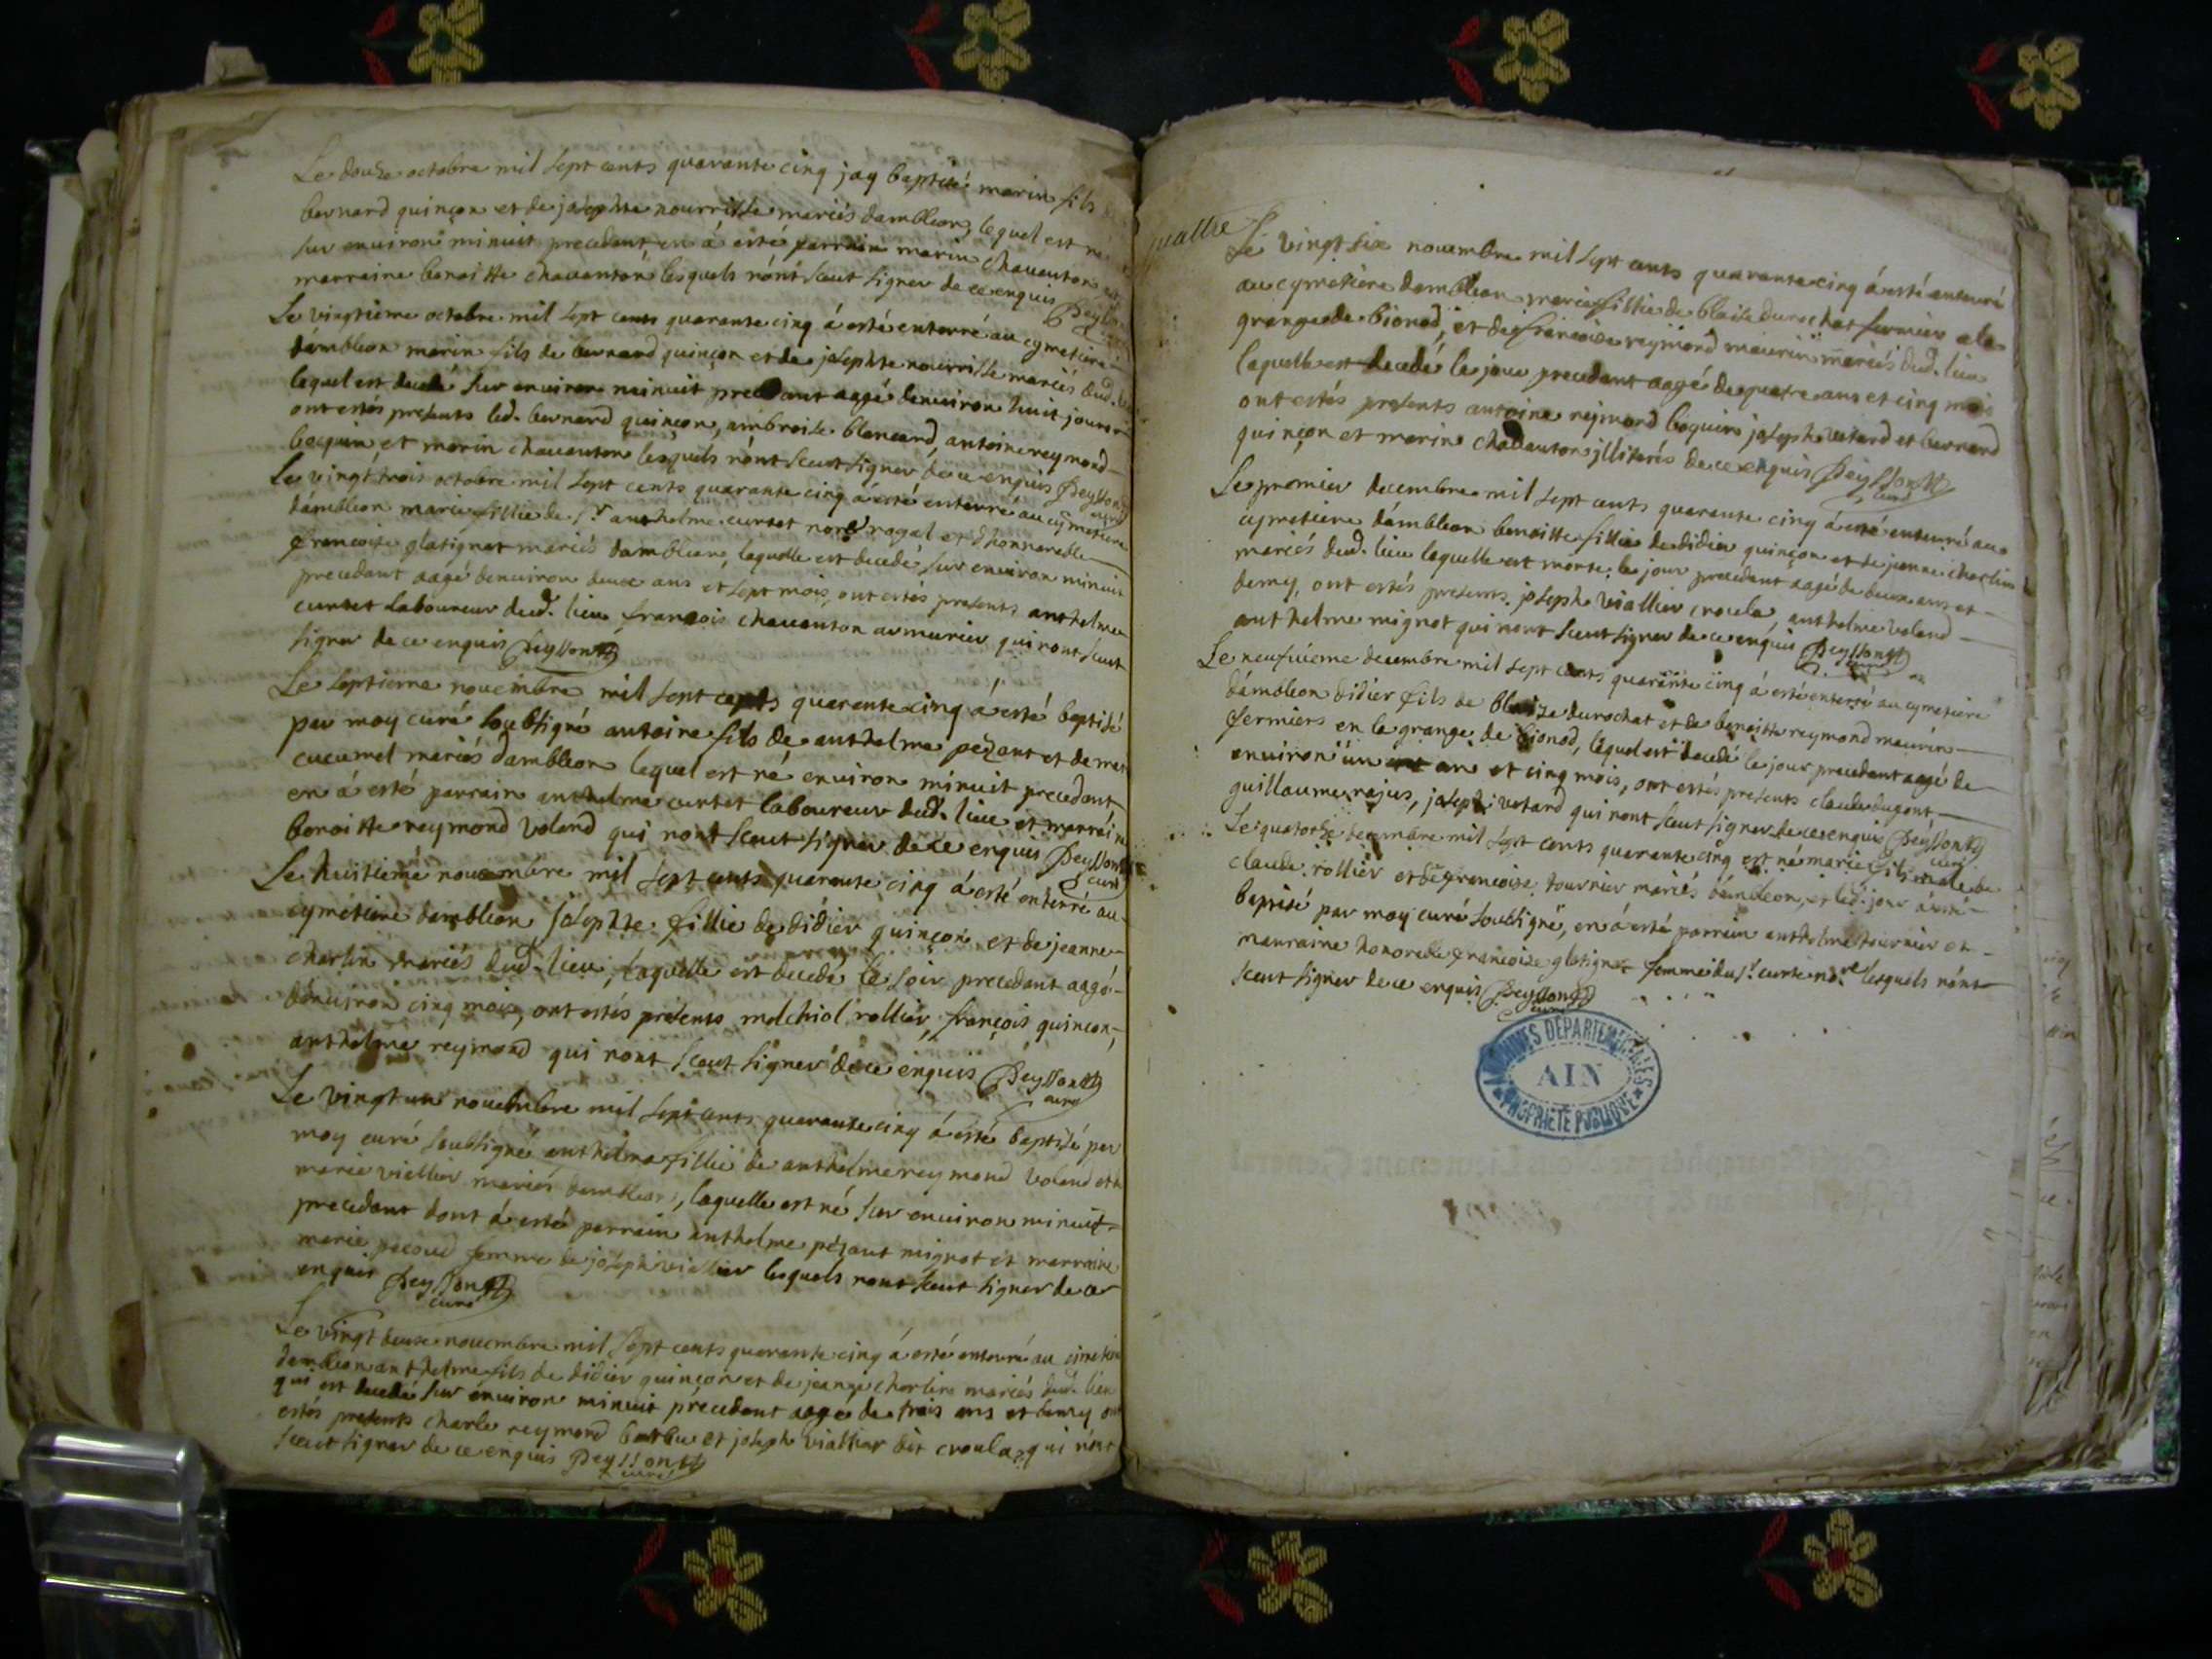 Le douze octobre mil sept cents quarante cinq jay baptisé marin fils
bernard quinçon et de josephte nourrisse mariés dambleon, lequel est né
sur environ minuit precedant en á esté parrain marin chauanton
marraine benoitte chauanton lesquels nónt sceut signer de ce enquis
Le vingtieme octobre mil sept cents quarante cinq á esté enterré au cymetiere
dámbleon marin fils de bernard quinçon et de josephte nourrisse mariés dud.
lequel est decedé sur environ minuit precedant aagé denuiron huit jours
ont estés presents led. bernard quinçon, ambroise blancard, antoine reymond
boquin et marin chauanton lesquels nónt sceut signer de ce enquis Peysson
curé
Le vingt trois octobre mil sept cents quarante cinq á esté enterré au cymetiere
dámbleon marie fillie de sr anthelme curtet nore royal et dhonnorable
francoise glatignat mariés dambleon, laquelle est decedé sur environ minuit
precedant aagé denuiron deux ans et sept mois, ont estés presents anthelme
curtet laboureur dud. lieu francois chauanton armurier qui nont sceut
signer de ce enquis Peysson
Le septieme nouembre mil sept cents quarante cinq á esté baptisé
par moy curé soubsigné antoine fils de anthelme pezant et de
cucumel mariés dambleon lequel est né environ minuit precedant
en á esté parrain anthelme curtet laboureur dud. lieu et marraine
benoitte reymond voland qui nont sceut signer de ce enquis Peysson
curé
Le huitiémé nouembre mil sept cents quarante cinq á esté enterré au
cymetiere dambleon josephte fillie de didier quinçon et de jeanne
charlin mariés dud. lieu, laquelle est decedé le soir precedant aagé
dénuiron cinq mois, ont estés présents melchiol rollier, françois quincon,
anthelme reymond qui nont sceut signer de ce enquis Peysson
curé
Le vingt un nouembre mil sept cents quarante cinq á esté baptisé par
moy curé soubsigné anthelma fillie de anthelme reymond voland et
marie viellier mariés dambleon, laquelle est né sur environ minuit
precedant dont á esté parrain anthelme pézant mignot et marraine
marie pacoud femme de joseph viellier lesquels nont sceut signer de ce
enquis Peysson
curé
Le vingt deux nouembre mil sept cents quarante cinq á esté enterré au cimetiere
dambleon anthelme fils de didier quinçon et de jeanne charlin mariés dud. lieu
qui est decedé sur environ minuit précedant aagé de trois ans et demy ont
estés presents charle reymond barbu et joseph viallier dit croula, qui nónt
sceut signer de ce enquis Peysson
curé
quattre
Le vingt six nouembre mil sept cents quarante cinq á esté enterré
au cymetiere dambleon marie fillie de blaise durochat fermier a la
grange de bionod, et de francoise reymond maurin mariés dud. lieu
laquelle est decedé le jour precedant aagé de quatre ans et cinq mois
ont estés presents antoine reymond boquin joseph vetard et bernard
quinçon et marin chauanton jlliterés de ce enquis Peysson
curé
Le premier decembre mil sept cents quarante cinq á esté enterré au
cymetiere dámbleon benoitte fillie de didier quinçon et de jeanne charlin
mariés dud. lieu laquelle est morte le jour precedant aagé de deux ans et
demy, ont estés presents joseph viallier croula, anthelme voland
anthelme mignot qui nont sceut signer de ce enquis Peysson
curé
Le neufuieme decembre mil sept cents quarante cinq á esté enterré au cymetiere
dámbleon didier fils de blaise durochat et de benoitte reymond maurin
fermiers en la grange de bionod, lequel est decedé le jour precedant aagé de
environ un an et cinq mois, ont estés presents claude dugont
guillaume rajus, joseph vetard qui nont sceut signer de ce enquis Peysson
curé
Le quatorse decembre mil sept cents quarante cinq est né marie de
claude rollier et de francoise tournier mariés dámbleon, et led. jour á esté
baptisé par moy curé soubsigné, en á esté parrain anthelme tournier et
marraine honorable francoise glatignat femme du sr curtet nore lesquels nónt
sceut signer de ce enquis Peysson
curé
ARCHIVES DÉPARTEMENTALES
AIN
PROPRIÉTÉ PUBLIQUE